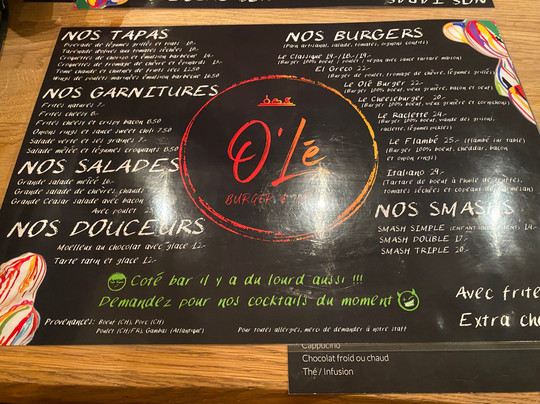 NOS TAPAS
Pincade de légumes grillés et toast 10.-
Tapenade d'olives aux tomates séchées 10.-
Croquettes de chorizo et émulsion barbecue 10.-
Croquettes de fromage de chèvre et épinards 13.-
Tome chaude et chutney de fruits 12.50
Wings de poulet marinées émulsion barbecue 12.50
NOS GARNITURES
Frites natures 7.-
Frites cheesy 8.-
Frites cheesy et crispy bacon 8.50
Onions rings et sauce sweet chili 7.50
Salade verte et ses graines 7.-
Salade mêlée et légumes croquants 8.50
NOS SALADES
Grande salade mêlée 16.-
Grande salade de chèvres chauds
Grande Ceasar salade avec bacon
Avec poulet
NOS DOUCEURS
Moelleux au chocolat avec glace 12.-
Tarte tatin et glace 12.-
O'Lé
BURGER &
NOS BURGERS
(Pain artisanal, salade, tomates, oignons confits)
Le Classique 19.-/18.-/19.-
(Burger 100% boeuf / poulet / végan avec sauce tartare maison)
El Greco 22.-
(Burger de poulet, fromage de chèvre, légumes grillés)
Le Olé Burger 22.-
(Burger 100% boeuf, vieux gruyère, bacon et oeuf)
Le Cheeseburger 20.-
(Burger 100% boeuf, vieux gruyère et cornichons)
Le Raclette 24.-
(Burger 100% boeuf, viande des grisons,
raclette, légumes pickles)
Le Flambé 25.- (flambé sur table)
(Burger 100% boeuf, cheddar, bacon
et onion rings)
Italiano 24.-
(Tartare de boeuf à l'huile de truffe,
tomates séchées et copeaux de parmesan)
NOS SMASHS
SMASH SIMPLE 14.-
SMASH DOUBLE 17.-
SMASH TRIPLE 20.-
Avec frite
Extra che
Coté bar il y a du lourd aussi !!!
Demandez pour nos cocktails du moment
Provenances: Boeuf (CH), Porc (CH)
Poulet (CH/FR), Gambas (Atlantique)
Pour toutes allergies, merci de demander à notre staff
Cappucino
Chocolat froid ou chaud
Thé / Infusion